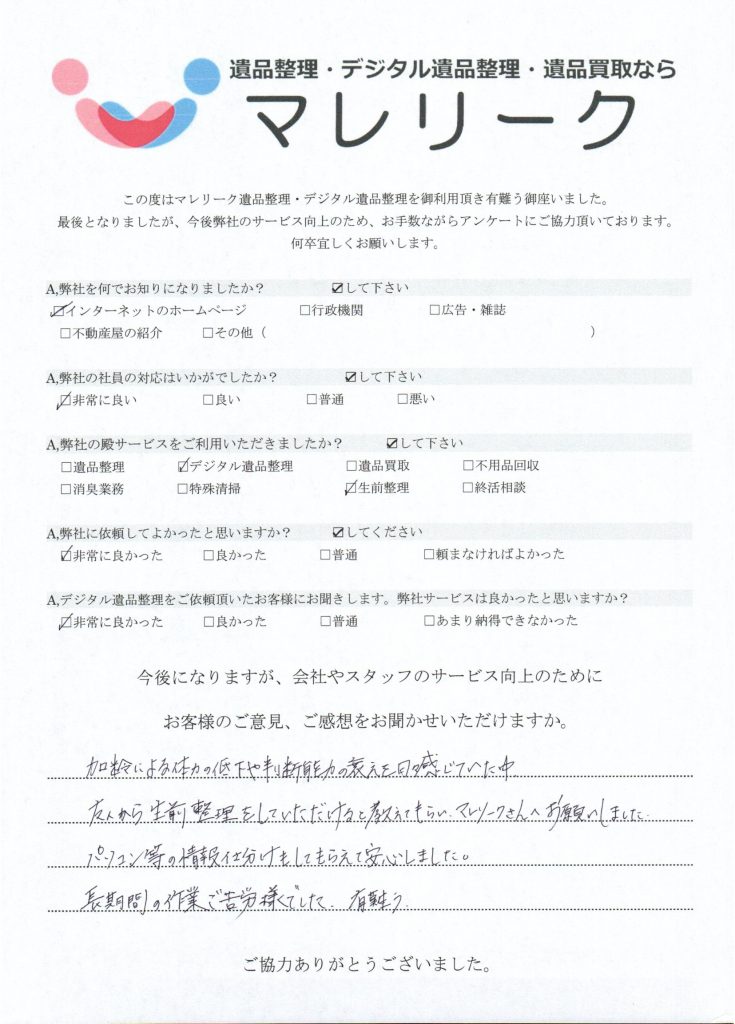 遺品整理・デジタル遺品整理・遺品買取なら
マレリーク
この度はマレリーク遺品整理・デジタル遺品整理を御利用頂き有難う御座いました。
最後となりましたが、今後弊社のサービス向上のため、お手数ながらアンケートにご協力頂いております。
何卒宜しくお願いします。
A,弊社を何でお知りになりましたか？ ☑して下さい
☑インターネットのホームページ □行政機関 □広告・雑誌
□不動産屋の紹介 □その他（ ）
A,弊社の社員の対応はいかがでしたか？ ☑して下さい
☑非常に良い □良い □普通 □悪い
A,弊社の殿サービスをご利用いただきましたか？ ☑して下さい
□遺品整理 ☑デジタル遺品整理 □遺品買取 □不用品回収
□消臭業務 □特殊清掃 ☑生前整理 □終活相談
A,弊社に依頼してよかったと思いますか？ ☑してください
☑非常に良かった □良かった □普通 □頼まなければよかった
A,デジタル遺品整理をご依頼頂いたお客様にお聞きします。弊社サービスは良かったと思いますか？
☑非常に良かった □良かった □普通 □あまり納得できなかった
今後になりますが、会社やスタッフのサービス向上のために
お客様のご意見、ご感想をお聞かせいただけますか。
加齢による体力の低下や判断能力の衰えを日々感じていた中
友人から生前整理をしていただけると教えてもらい、マレリークさんへお願いしました。
パソコン等の情報仕分けもしてもらえて安心しました。
長期間の作業ご苦労様でした。有難う。
ご協力ありがとうございました。